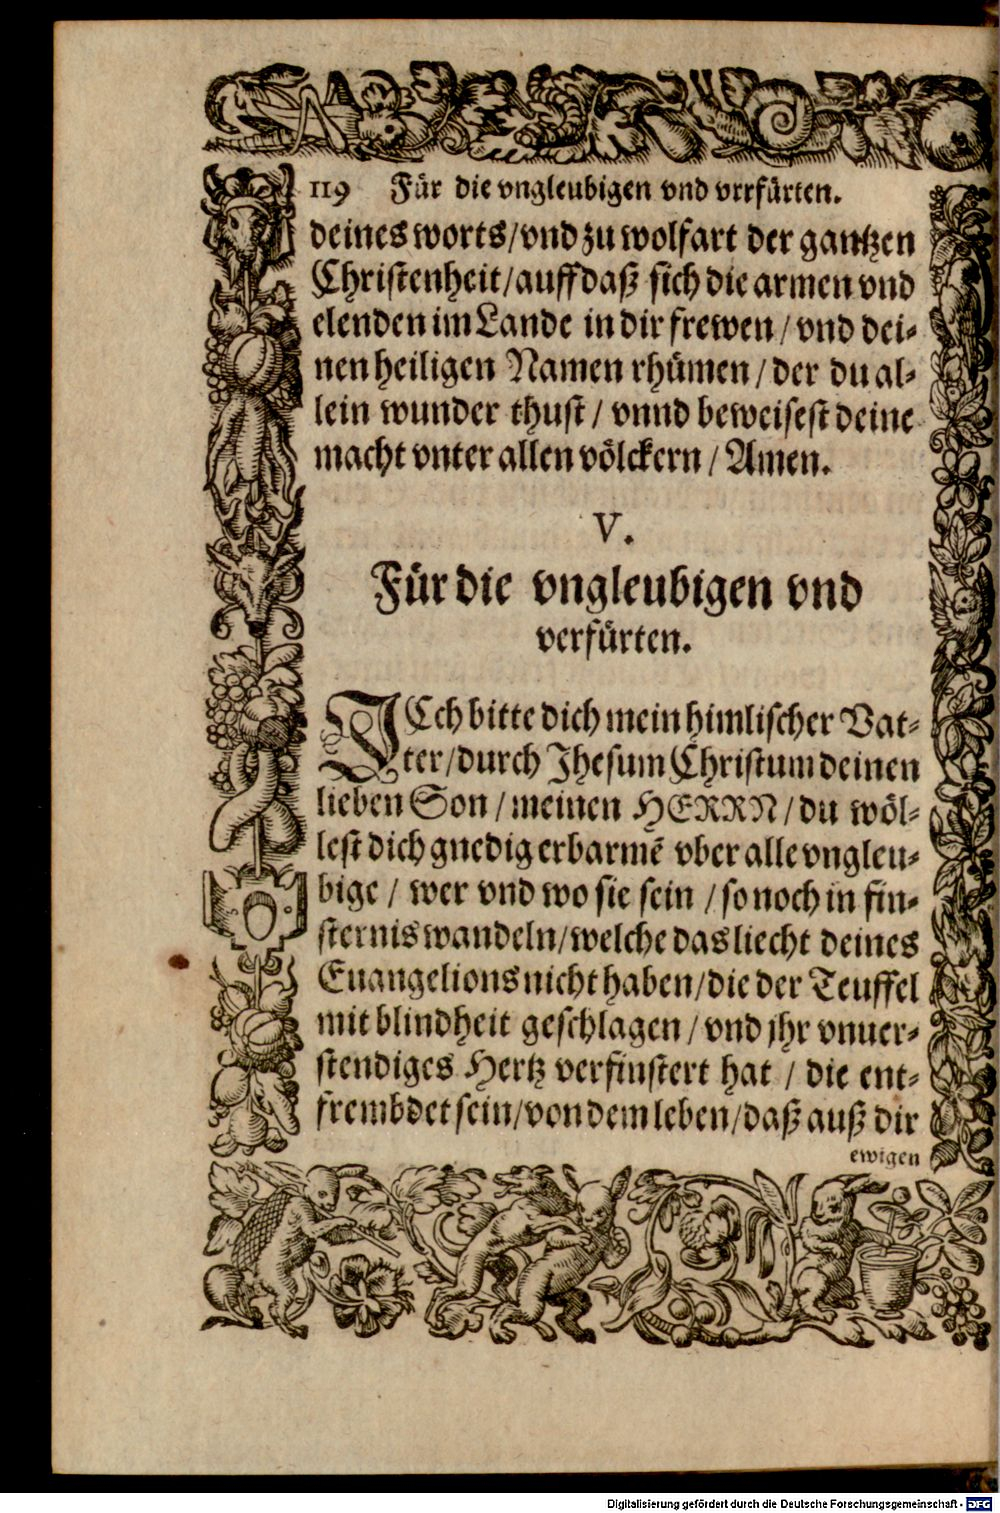 119 Für die vngleubigen vnd vrrfürten.
deines worts/vnd zu wolfart der gantzen
Christenheit/auff daß sich die armen vnd
elenden im Lande in dir frewen/vnd dei-
nen heiligen Namen rhümen/der du al-
lein wunder thust/vnnd beweisest deine
macht vnter allen völckern/Amen.
V.
Für die vngleubigen vnd
verfürten.
ICch bitte dich mein himlischer Vat-
ter/durch Jhesum Christum deinen
lieben Son/meinen HERRN/du wöl-
lest dich gnedig erbarmē vber alle vngleu-
bige/wer vnd wo sie sein/so noch in fin-
sternis wandeln/welche das liecht deines
Euangelions nicht haben/die der Teuffel
mit blindheit geschlagen/vnd jhr vnuer-
stendiges Hertz verfinstert hat/die ent-
frembdet sein/von dem leben/daß auß dir
ewigen
Digitalisierung gefördert durch die Deutsche Forschungsgemeinschaft - DFG